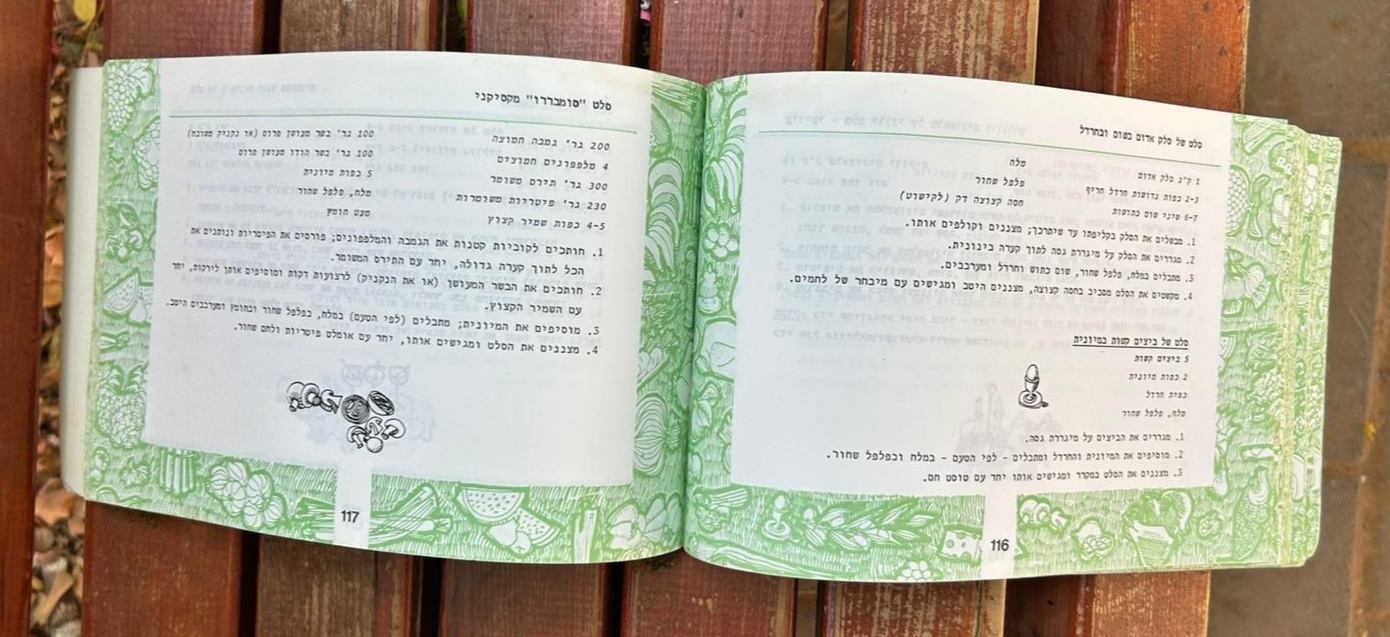 סלט של סלק אדום בשום ובחרדל
1 ק"ג סלק אדום
2-3 כפות גדושות חרדל חריף
6-7 שיני שום כתושות
מלח
פלפל שחור
חסה קצוצה דק (לקישוט)
1. מבשלים את הסלק בקליפתו עד שיתרכך; מצננים וקולפים אותו.
2. מגררים את הסלק על מיגררת גסה לתוך קערה בינונית.
3. מתבלים במלח, פלפל שחור, שום כתוש וחרדל ומערבבים.
4. מקשטים את הסלט מסביב בחסה קצוצה, מצננים היטב ומגישים עם מיבחר של לחמים.
סלט של ביצים קשות במיונית
5 ביצים קשות
2 כפות מיונית
כפית חרדל
מלח, פלפל שחור
1. מגררים את הביצים על מיגררת גסה.
2. מוסיפים את המיונית והחרדל ומתבלים - לפי הטעם - במלח ובפלפל שחור.
3. מצננים את הסלט במקרר ומגישים אותו יחד עם טוסט חם.
116
סלט "סומבררו" מקסיקני
200 גר' גמבה חמוצה
4 מלפפונים חמוצים
300 גר' תירס משומר
230 גר' פיטריות משומרות
4-5 כפות שמיר קצוץ
100 גר' בשר מעושן פרוס (או נקניק משובח)
100 גר' בשר הודו מעושן פרוס
5 כפות מיונית
מלח, פלפל שחור
מעט חומץ
1. חותכים לקוביות קטנות את הגמבה והמלפפונים; פורסים את הפיטריות ונותנים את
הכל לתוך קערה גדולה, יחד עם התירס המשומר.
2. חותכים את הבשר המעושן (או את הנקניק) לרצועות דקות ומוסיפים אותן לירקות, יחד
עם השמיר הקצוץ.
3. מוסיפים את המיונית; מתבלים (לפי הטעם) במלח, בפלפל שחור ובחומץ ומערבבים היטב.
4. מצננים את הסלט ומגישים אותו, יחד עם אומלט פיטריות ולחם שחור.
117